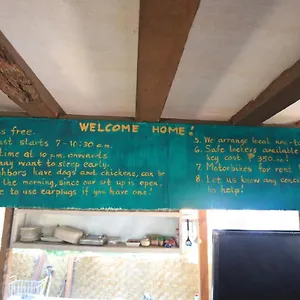 WELCOME HOME!
s free.
ast starts 7-10:30 a.m.
time at 10 p.m. onwards
may want to sleep early.
ghbors have dogs and chickens, can be
the morning, since our set up is open.
e to use earplugs if you have one!
5. We arrange local
6. Safe lockers available
key cost ₱ 350.
7. Motorbikes for rent
8. Let us know any
to help!